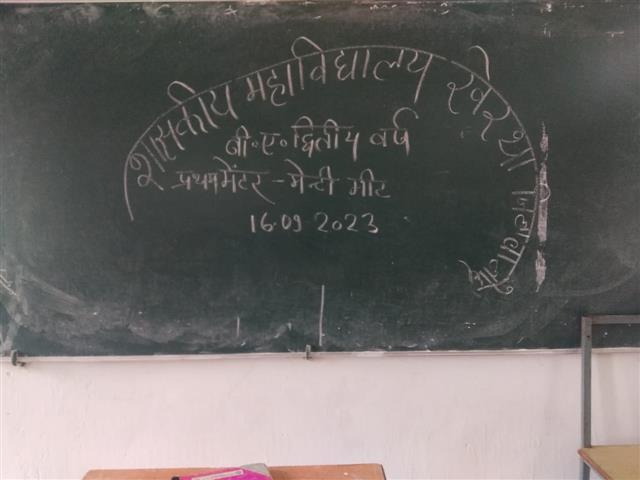 शासकीय महाविद्यालय खेरथा जिला बालोद
बी.ए. द्वितीय वर्ष
प्रथम मेंटर - मेन्टी मीट
16.09.2023